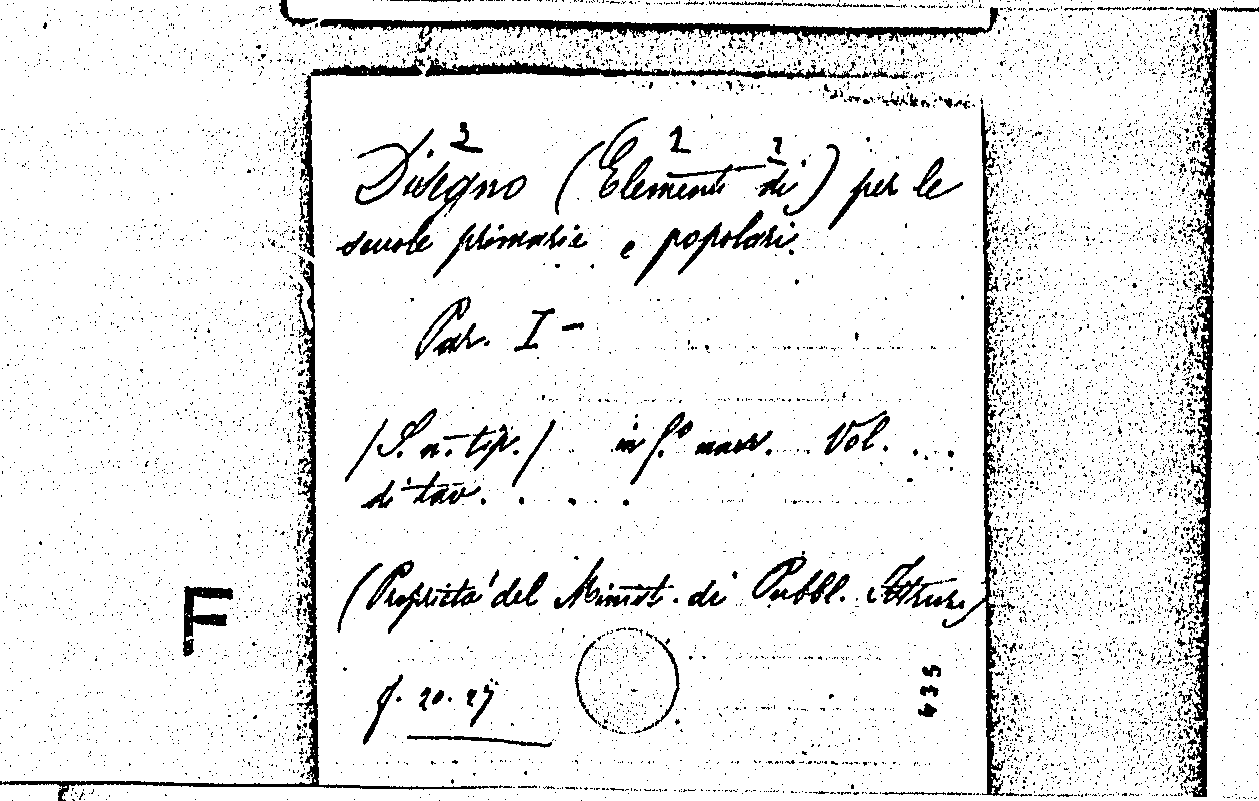 Disegno (Elementi di) per le
scuole primarie e popolari.
Par. I -
/S. n. tip./ in f.º mass. Vol. ...
di tav. . . .
(Proprietà del Minist. di Pubbl. Istruz.)
F
f. 20. 27
435